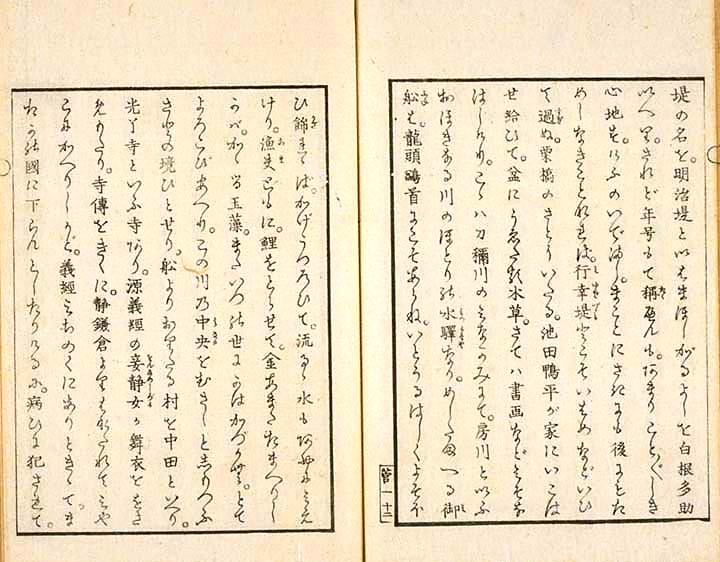 堤の名を。明治堤と以はまほしがるよしを白根多助
いへり。されど年号もて稱へんも。あまりことごとしき
心地す。けふのいでましは。まことにさきにも後にもた
めしなきことなれば。行幸堤とこそいはめなどいひ
て過ぬ。栗橋のさとにいたる。池田鴨平が家にいこは
せ給ひて。盆にうゑたる水草。さては書画など
こゝは刀禰川のみなかみにて。房川と以ふ
おほきなる川のほとりの水驛なり。めしたまへる御
船は。龍頭鷁首にこそあらね。いとうるはしくよそほ
十二
ひ錦 ばかげうつろひて。流るゝ水もあやにみえ
けり。漁夫 に。鯉をとらせて。金あまたたまはりし
かば。かゝる玉藻。またいつの世にかはかづかむ。とて
よろこびあへり。この川乃中央をむさしと志もつふ
さとの境ひとせり。船よりおりたる村を中田といへり。
光了寺といふ寺あり。源義經の妾静女が舞衣ををさ
めもたり。寺傳をきくに静鎌倉よりはなたれてみや
こにかへりしかど。義經みちのくにありときゝて。ま
たかの國に下らんとしたりけるに。病ひに犯されて。